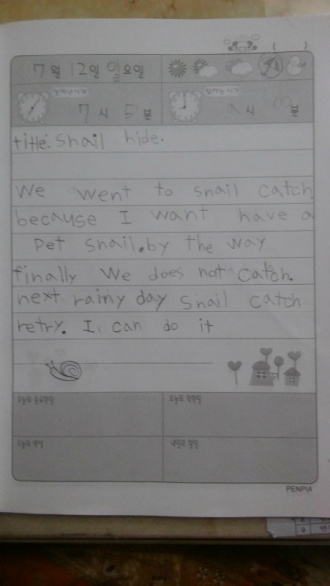 7월 12일 일요일
7시 5분
시
title. Snail hide.
We went to snail catch
because I want have a
pet snail. by the way
finally We does not catch.
next rainy day snail catch
retry. I can do it
PENPIA